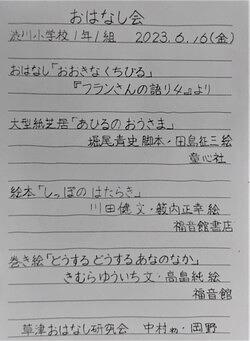 おはなし会
渋川小学校1年1組 2023.6.16(金)
おはなし「おおきなくちひる」
『フランさんの語り4』より
大型紙芝居「あひるの おうさま」
堀尾青史 脚本・田島征三 絵
童心社
絵本「しっぽの はたらき」
川田健 文・藪内正幸 絵
福音館書店
巻き絵「どうする どうする あなのなか」
きむらゆういち 文・高畠純 絵
福音館
草津おはなし研究会 中村 岡野